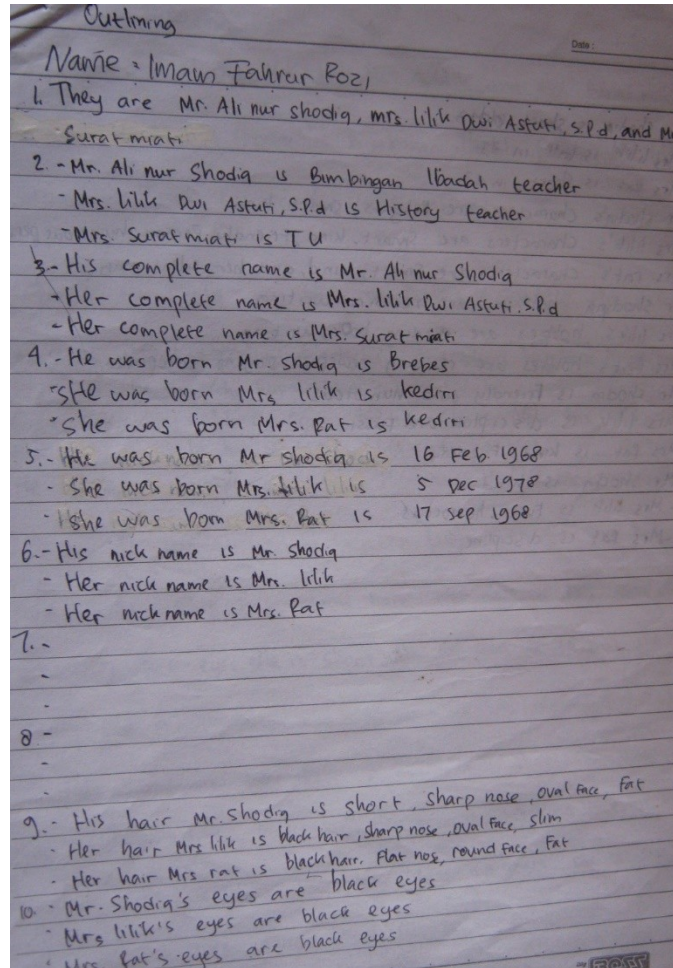 Outlining
Date :
Name : Imam Fahrur Rozi
1. They are Mr. Ali nur shodiq, mrs. lilik Dwi Astuti, S.Pd, and M
Suratmiati
2. - Mr. Ali nur Shodiq is Bimbingan Ibadah teacher
- Mrs. lilik Dwi Astuti, S.Pd is History teacher
- Mrs. Suratmiati is TU
3. - His complete name is Mr. Ali nur Shodiq
- Her complete name is Mrs. lilik Dwi Astuti. S.Pd
- Her complete name is Mrs. Suratmiati
4. - He was born Mr. Shodiq is Brebes
- She was born Mrs lilik is kediri
- She was born Mrs. Rat is kediri
5. - He was born Mr shodiq is 16 Feb 1968
- She was born Mrs. lilik is 5 Dec 1978
- She was born Mrs. Rat is 17 sep 1968
6. - His nick name is Mr. Shodiq
- Her nick name is Mrs. lilik
- Her nick name is Mrs. Rat
7. -
-
-
8 -
-
-
9. - His hair Mr. Shodiq is short, sharp nose, oval face, fat
- Her hair Mrs lilik is black hair, sharp nose, oval face, slim
- Her hair Mrs rat is black hair. Flat nos, round face, fat
10. - Mr. Shodiq's eyes are black eyes
- Mrs lilik's eyes are black eyes
- Mrs. Rat's eyes are black eyes